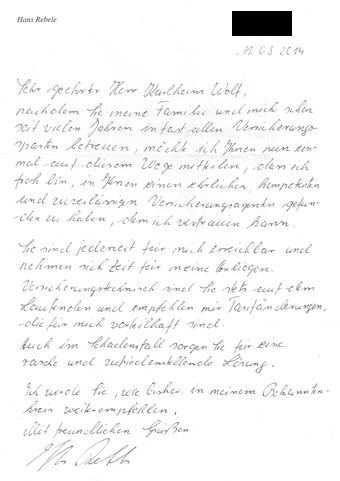 Hans Rebele
11.03.2014
Sehr geehrter Herr Karlheinz Wolf,
nachdem Sie meine Familie und mich schon
seit vielen Jahren in fast allen Versicherungs-
sparten betreuen, möchte ich Ihnen nun ein-
mal auf diesem Wege mitteilen, dass ich
froh bin, in Ihnen einen ehrlichen, kompetenten
und zuverlässigen Versicherungsagenten gefun-
den zu haben, dem ich vertrauen kann.
Sie sind jederzeit für mich erreichbar und
nehmen sich Zeit für meine Anliegen.
Versicherungstechnisch sind Sie stets auf dem
Laufenden und empfehlen mir Tarifänderungen,
die für mich vorteilhaft sind.
Auch im Schadensfall sorgen Sie für eine
rasche und zufriedenstellende Lösung.
Ich werde Sie, wie bisher, in meinem Bekannten-
kreis weiterempfehlen.
Mit freundlichen Grüßen